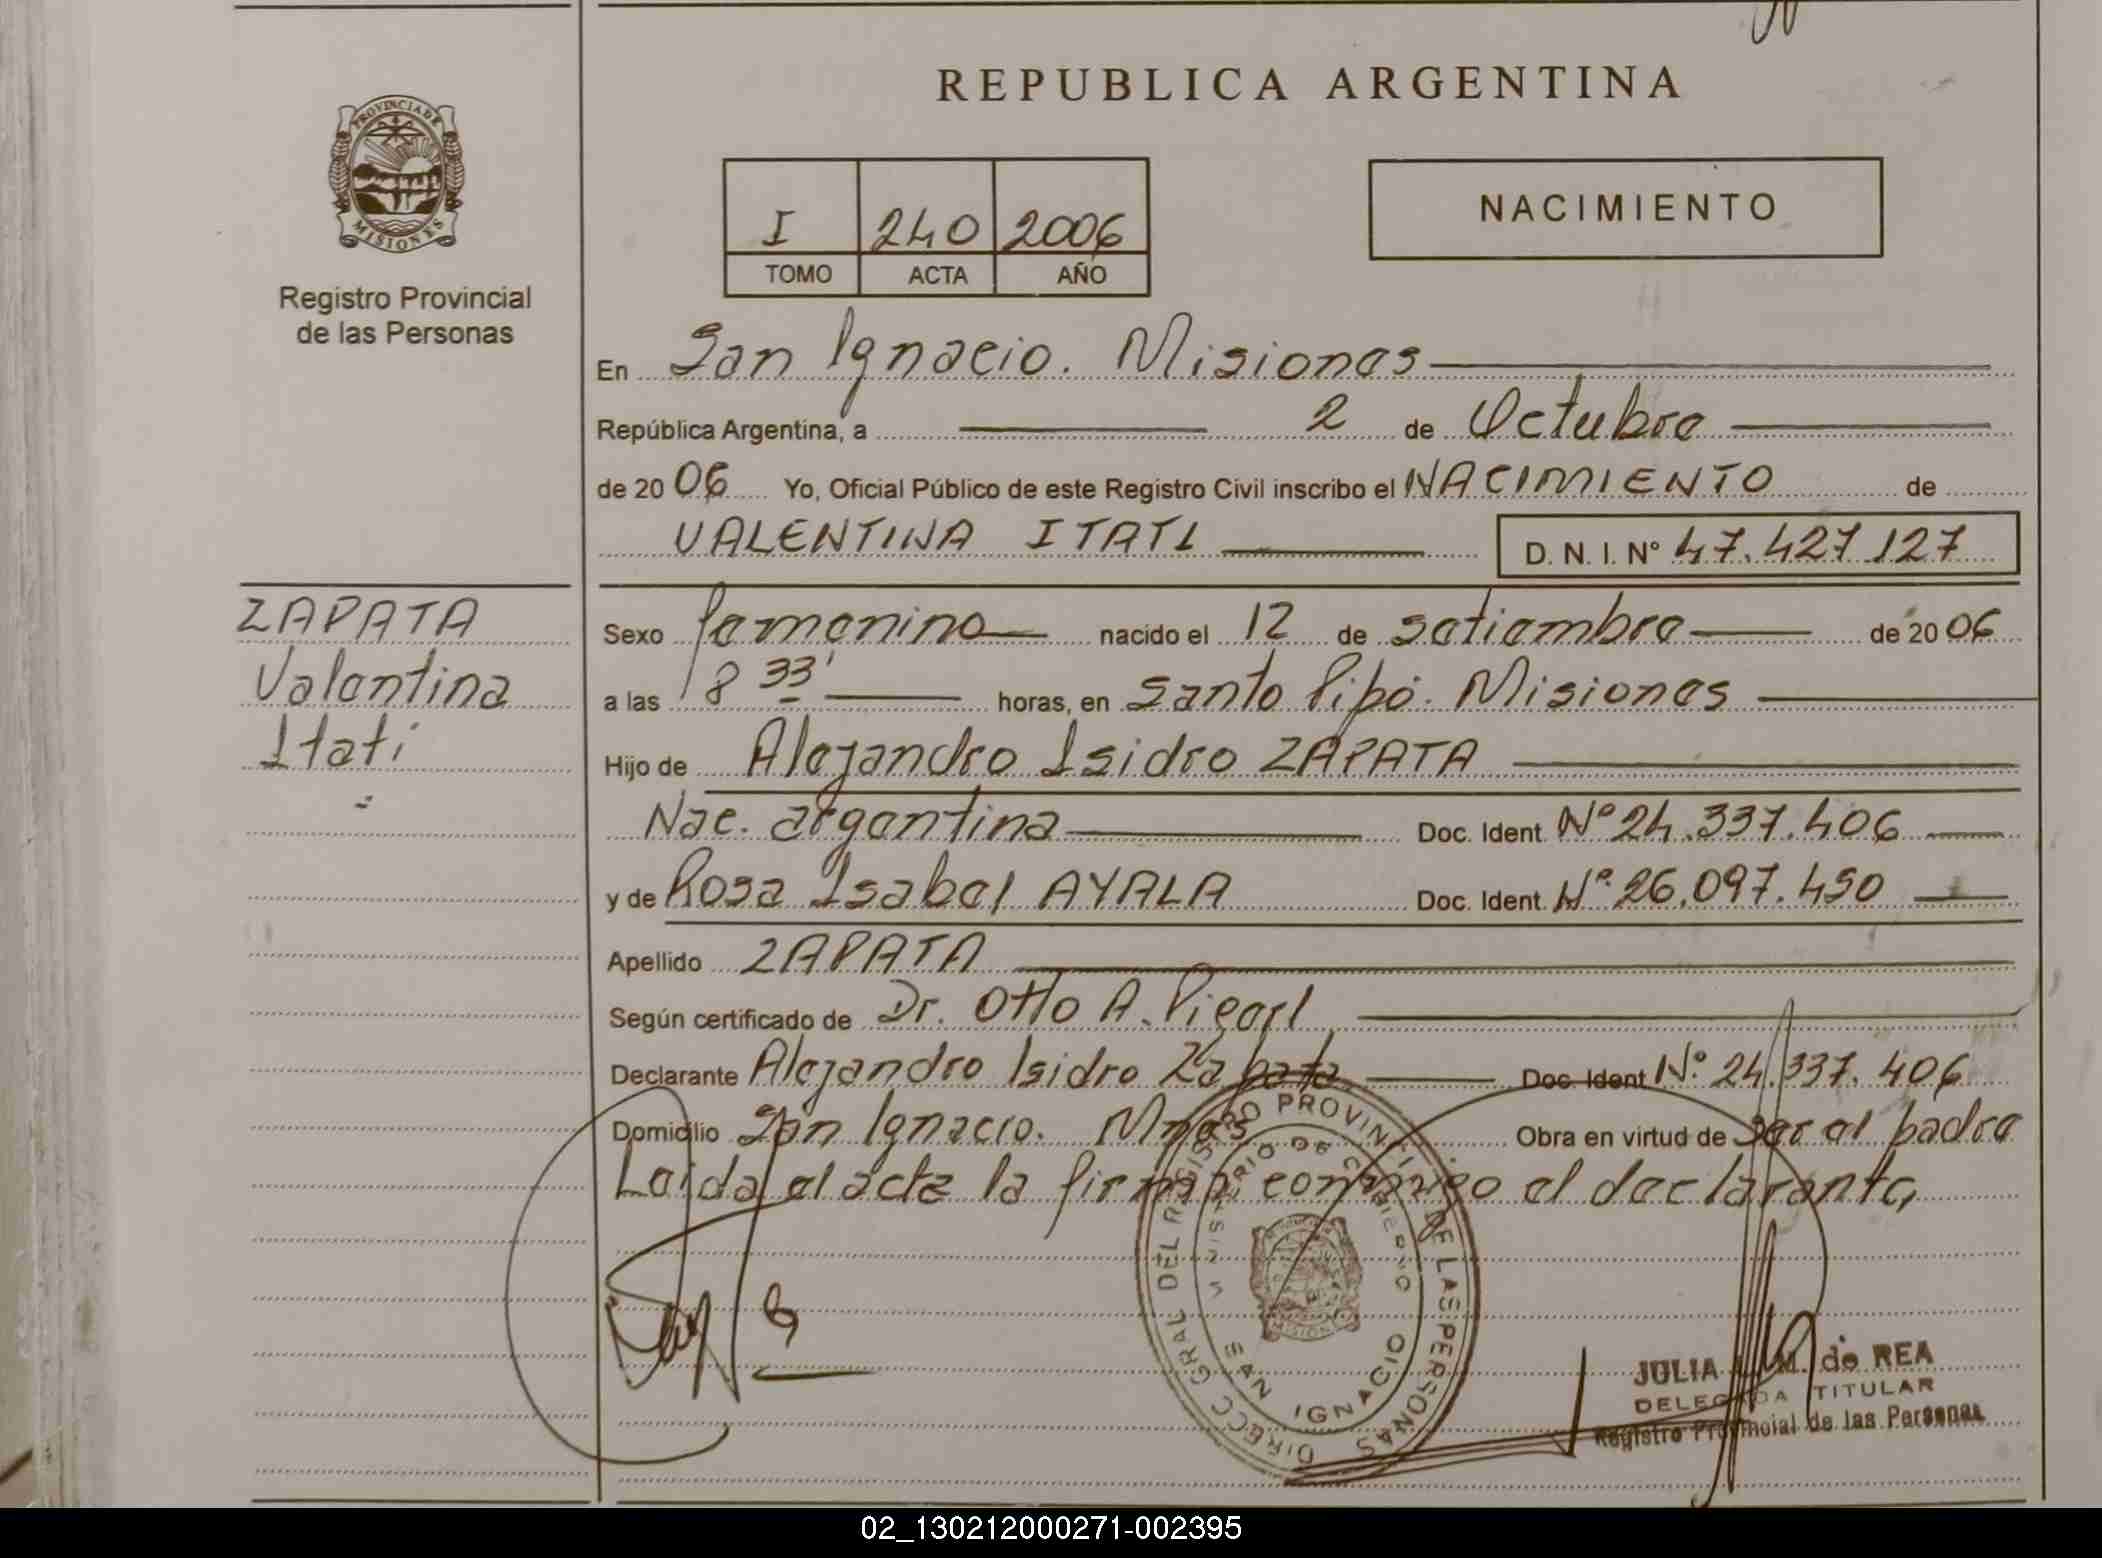 REPUBLICA ARGENTINA
PROVINCIA DE MISIONES
Registro Provincial
de las Personas
I 240 2006
TOMO ACTA AÑO
NACIMIENTO
En San Ignacio. Misiones
República Argentina, a 2 de Octubre
de 2006 Yo, Oficial Público de este Registro Civil inscribo el NACIMIENTO de
VALENTINA ITATI D. N. I. Nº 47.427.127
ZAPATA
Valentina
Itatí
Sexo femenino nacido el 12 de setiembre de 2006
a las 8 33' horas, en Santo Pipó. Misiones
Hijo de Alejandro Isidro ZAPATA
Nac. argentina Doc. Ident. Nº 24.337.406
y de Rosa Isabel AYALA Doc. Ident. Nº 26.097.450
Apellido ZAPATA
Según certificado de Dr. Otto A.
Declarante Alejandro Isidro Zapata Doc. Ident Nº 24.337.406
Domicilio San Ignacio. Mnes Obra en virtud de ser el padre
Leida el acta la firma conmigo el declarante,
DIRECC GRAL DEL REGISTRO PROVINCIAL DE LAS PERSONAS
MINISTERIO DE GOBIERNO
SAN IGNACIO
MISIONES
JULIA M. de REA
DELEGADA TITULAR
Registro Provincial de las Personas
02_130212000271-002395